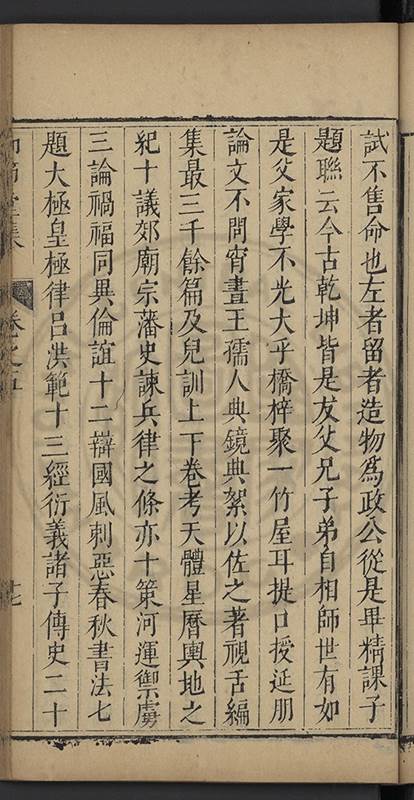 試不售命也左者留者造物為政公從是畢精課子
題聯云今古乾坤皆是友父兄子弟自相師世有如
是父家學不光大乎橋梓聚一竹屋耳提口授延朋
論文不問宵晝王孺人典鏡典絮以佐之著視舌編
集最三千餘篇及兒訓上下卷考天體星曆輿地之
紀十議郊廟宗藩史諫兵律之條亦十策河運禦虜
三論禍福同異倫誼十二辯國風刺惡春秋書法七
題大極皇極律呂洪範十三經衍義諸子傳史二十
集 卷之五 十七